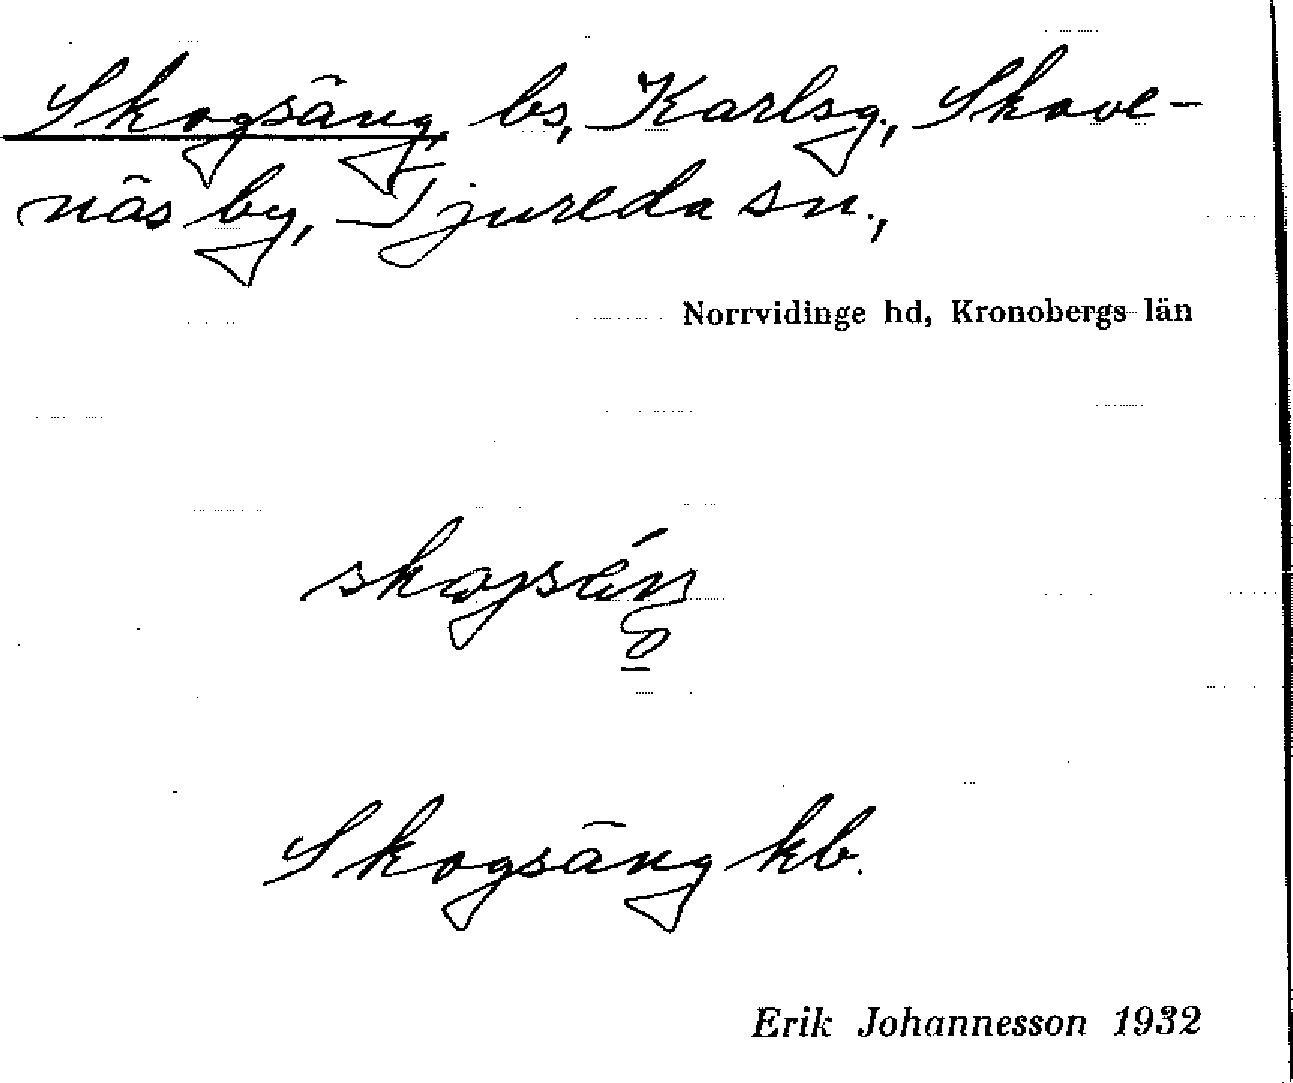 Skogsäng, bs, Karlsg., Skove-
näs by, Tjureda sn.,
Norrvidinge hd, Kronobergs län
Skogsäng kb.
Erik Johannesson 1932